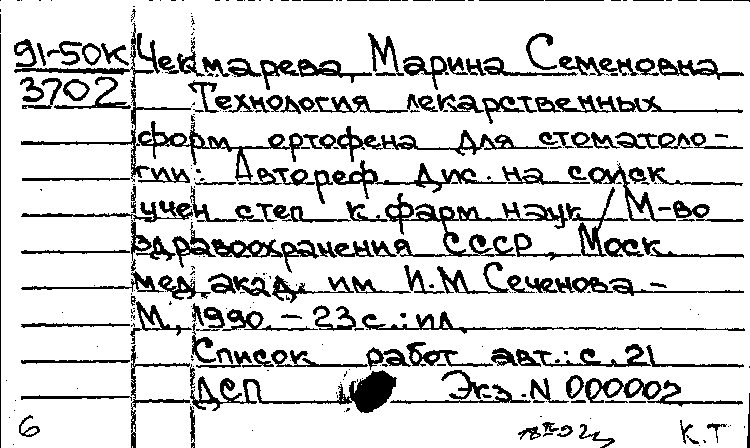 91-50К Чекмарева, Марина Семеновна
3702 Технология лекарственных
форм ортофена для стоматоло-
гии: Автореф. дис. на соиск.
учен степ к.фарм наук / М-во
здравоохранения СССР, Моск.
мед. акад. им И.М Сеченова. -
М., 1990. - 23 с.: ил.
Список работ авт.: с. 21
ДСП Экз. N 000002
6 К.Т